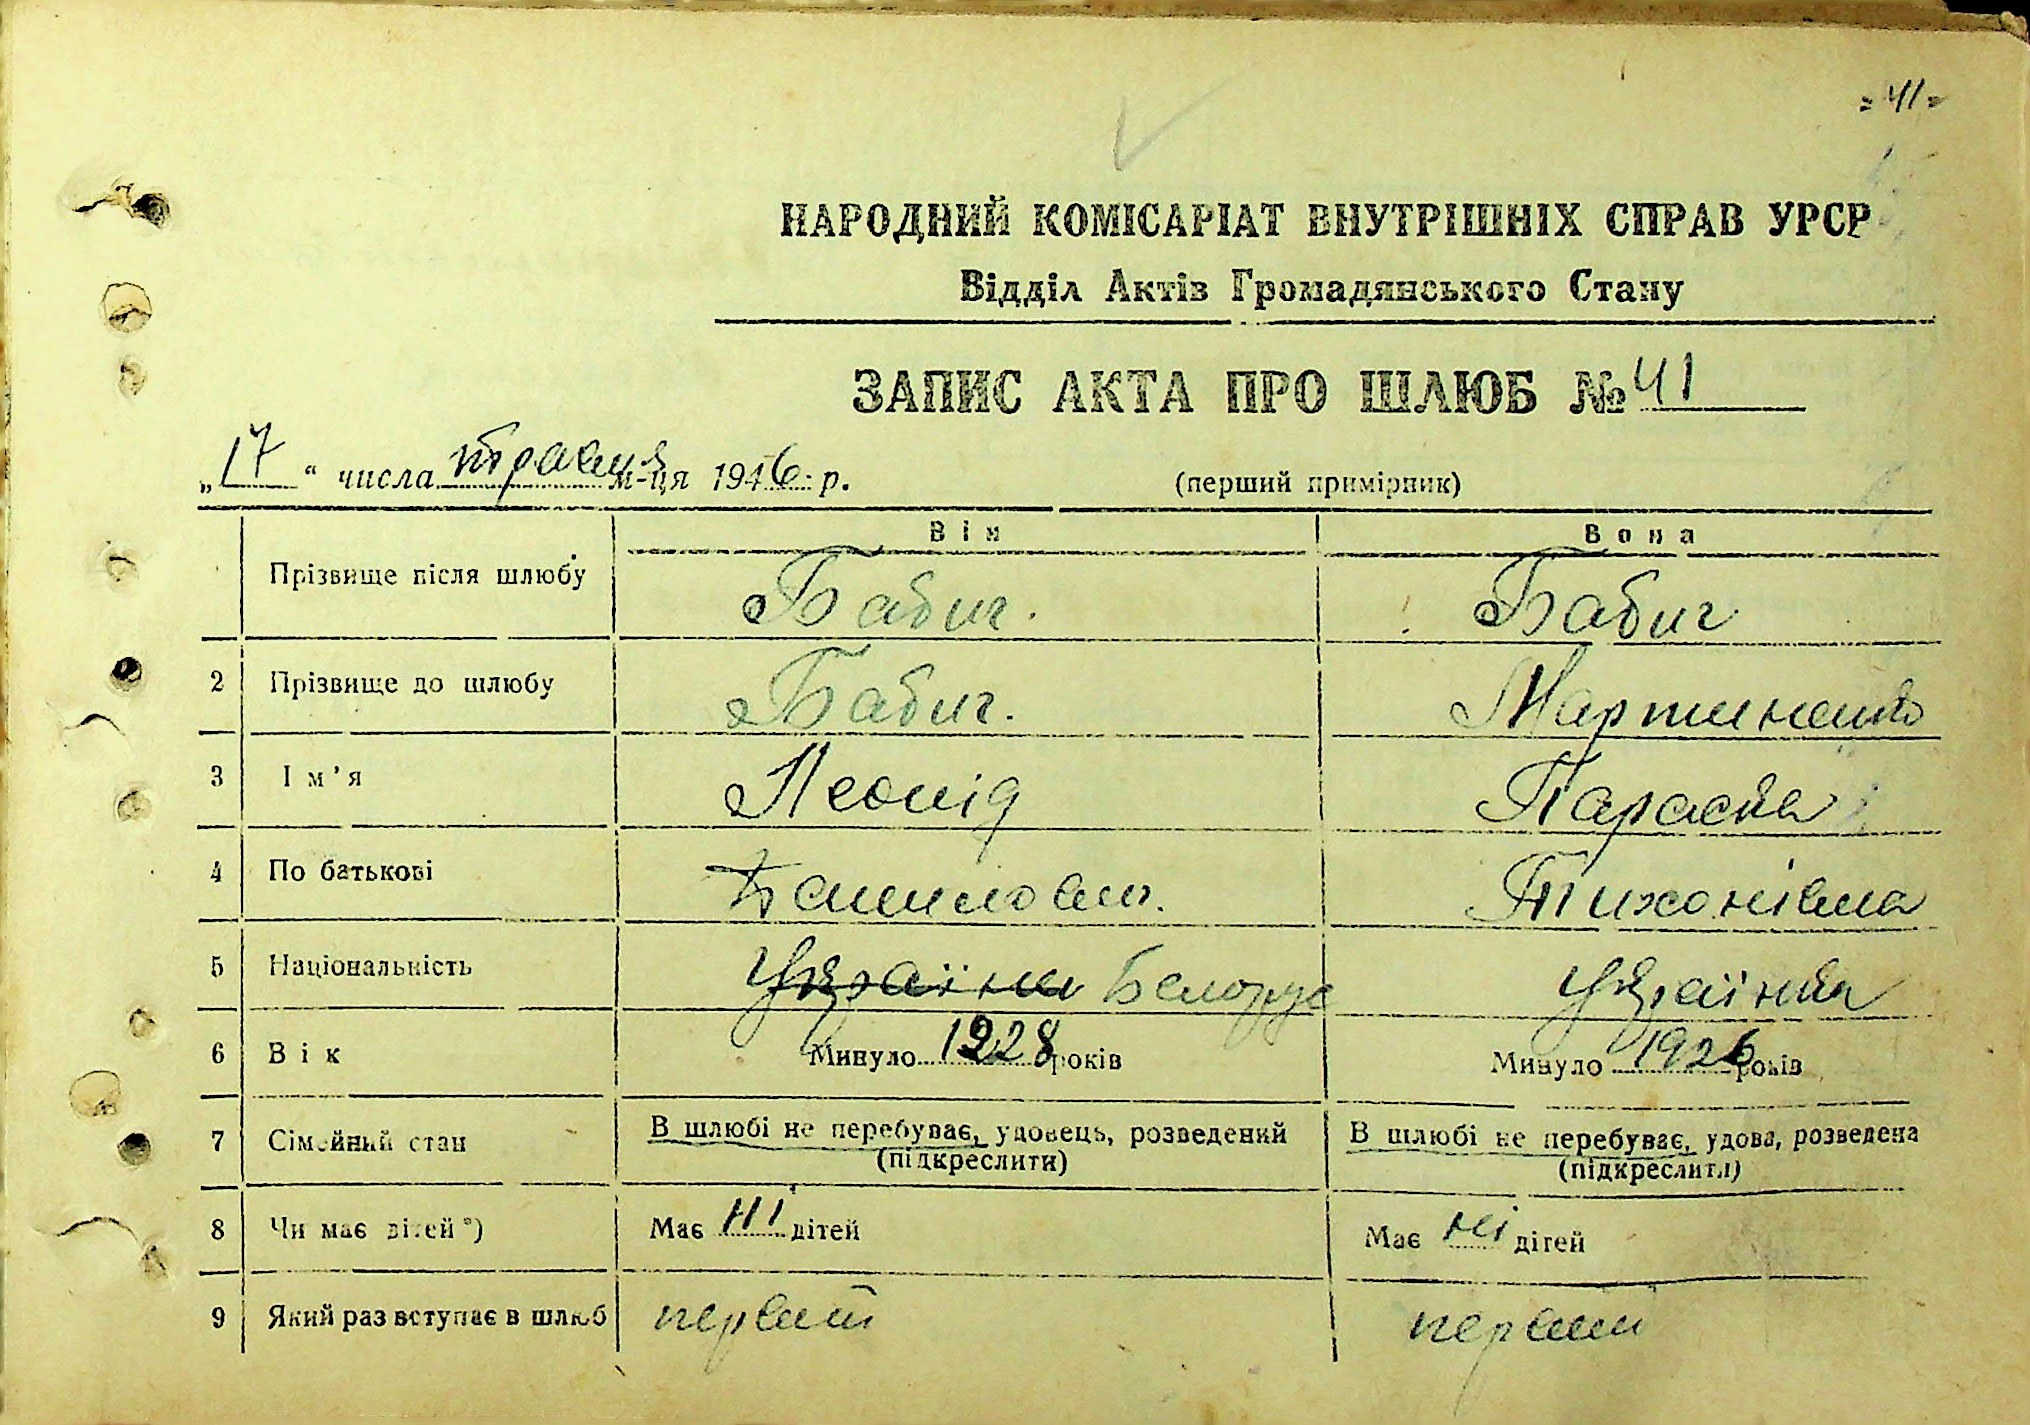 = 41 =
НАРОДНИЙ КОМІСАРІАТ ВНУТРІШНІХ СПРАВ УРСР
Відділ Актів Громадянського Стану
ЗАПИС АКТА ПРО ШЛЮБ № 41
„17“ числа травня м-ця 1946 р. (перший примірник)
Він Вона
Прізвище після шлюбу Бабич. Бабич
2 Прізвище до шлюбу Бабич. Мартиненко
3 Ім’я Леонід Параска
4 По батькові Данилович. Тихонівна
5 Національність Українец Белорус Українка
6 Вік Минуло 1928 років Минуло 1926 років
7 Сімейний стан В шлюбі не перебуває, удовець, розведений В шлюбі не перебуває, удова, розведена
(підкреслити) (підкреслити)
8 Чи має дітей*) Має ні дітей Має ні дітей
9 Який раз вступає в шлюб первий первий